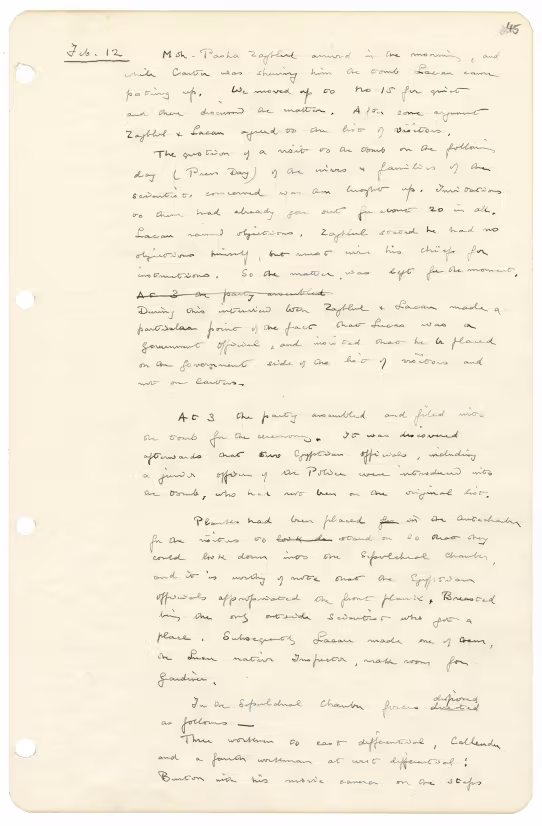 45
Feb. 12 Moh. Pasha Zaghlul arrived in the morning, and
while Carter was showing him the tomb Lacau came
poking up. We moved up to No. 15 for quiet
and there discussed the matter. After some argument
Zaghlul & Lacau agreed to the list of visitors.
The question of a visit to the tomb on the following
day (Press Day) of the wives & families of the
scientists concerned was then brought up. Invitations
to these had already gone out for about 20 in all.
Lacau raised objections. Zaghlul stated he had no
objections himself, but must wire his chiefs for
instructions. So the matter was left for the moment.
At 3 the party assembled
During this interview both Zaghlul & Lacau made a
particular point of the fact that Lucas was a
government official, and insisted that he be placed
on the government side of the list of visitors and
not on Carter's.
At 3 the party assembled and filed into
the tomb for the ceremony. It was discovered
afterwards that two Egyptian officials, including
a junior officer of the Police were introduced into
the tomb, who had not been on the original list.
Planks had been placed for in the Antechamber
for the visitors to look do stand on so that they
could look down into the Sepulchral Chamber,
and it is worthy of note that the Egyptian
officials appropriated the front plank, Breasted
being the only outside scientist who got a
place. Subsequently Lacau made one of them,
the Luxor native Inspector, make room for
Gardiner.
In the Sepulchral Chamber forces directed disposed
as follows —
Three workmen to east differential, Callender
and a fourth workman at west differential:
Burton with his movie camera on the steps